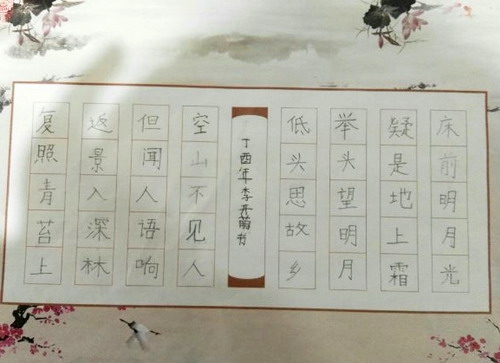 床前明月光
疑是地上霜
举头望明月
低头思故乡
丁酉年李开萌书
空山不见人
但闻人语响
返景入深林
复照青苔上